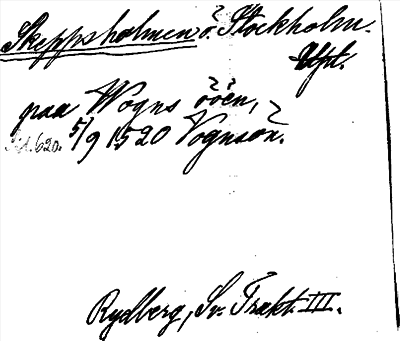 Skeppsholmen ö. Stockholm.
Upl.
paa Wogns ööen,
Sid. 620. 5/9 1520 Vognsön.
Rydberg, Sv. Trakt. III.